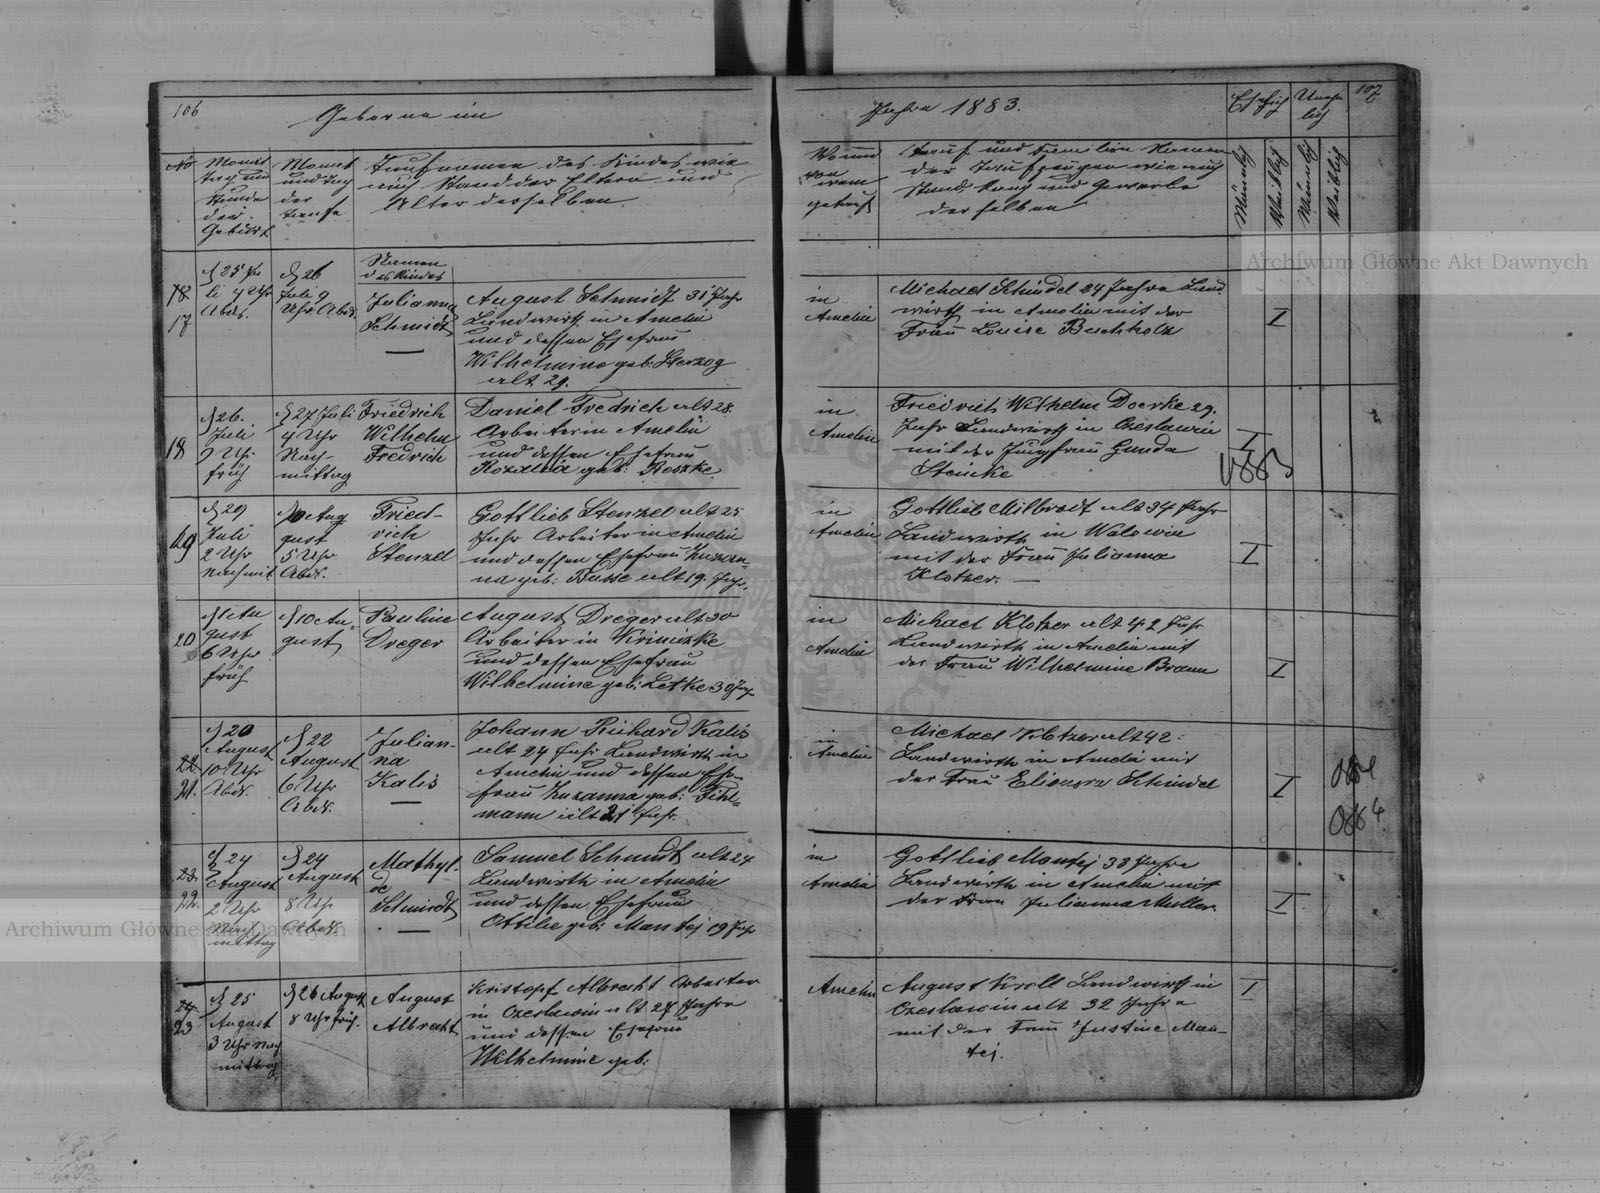 106
Geborne im
No
Monat
Tag und
Stunde
der
Geburt
Monat
und Tag
der
Taufe
Taufnamen des Kindes wie
auch Stand der Eltern und
Alter derselben.
Namen
des Kindes
18
17
d 25 Ju
li 4 Uhr
Abds.
d 26
Juli 9
Uhr Abds.
Julianna
Schmidt
August Schmidt 31 Jahr
Landwirth in Amelin
und dessen Ehefrau
Wilhelmine geb: Herzog
alt 29.
18
d 26.
Juli
Uhr
früh
d 27 Juli
4 Uhr
Nach-
mittag
Friedrich
Wilhelm
Fredrich
Daniel Fredrich alt 28.
Arbeiter in Amelin
und dessen Ehefrau
Rozalia geb: Reszke.
19
d 29
Juli
2 Uhr
Nachmit.
d 10 Aug
gust
5 Uhr
Abds.
Fried-
rich
Stenzel
Gottlieb Stenzel alt 25
Jahr Arbeiter in Amelin
und dessen Ehefrau Zuzan-
na geb: Busse alt 19. Jahr.
20
d 1 Au
gust
6 Uhr
früh
d 10 Au-
gust
Pauline
Dreger
August Dreger alt 30
Arbeiter in
und dessen Ehefrau
Wilhelmine geb: Letke 30 Jahr
22
21.
d 20
August
10 Uhr
Abds.
d 22
August
6 Uhr
Abds.
Julian-
na
Kalis
Johann Richard Kalis
alt 24 Jahr Landwirth in
Amelin und dessen Ehe-
frau Zuzanna geb:
mann alt 21 Jahr.
23.
22.
d 24
August
2 Uhr
Nach
mittag
d 24
August
8 Uhr
Abds.
Mathyl-
de
Schmidt
Samuel Schmidt alt 24
Landwirth in Amelin
und dessen Ehefrau
Ottilie geb: Mantej 19 Jahr
24
23
d 25
August
3 Uhr Nach
mittag
d 26 August
8 Uhr früh.
August
Albrecht
Kristopf Albrecht Arbeiter
in Czeslawin alt 27 Jahre
und dessen Ehefrau
Wilhelmine geb:
107
Jahre 1883.
Ehelich
Unehe
lich
Wo und
von
wem
getauft
Tauf und Familien Namen
der Taufzeugen wie auch
Stand, Rang und Gewerbe
derselben
Männlich
Weiblich
Männlich
Weiblich
in
Amelin
Michael Schindel 24 Jahre Land
wirth in Amelin mit der
Frau Louise Buchholz
I
in
Amelin
Friedrich Wilhelm Doerke 29.
Jahr Landwirth in Czeslawin
mit der Jungfrau Gunda
Steinke
I
in
Amelin
Gottlieb Milbrodt alt 34 Jahr
Landwirth in Walowice
mit der Frau Julianna
Klotzer.
I
in
Amelin
Michael Klotzer alt 42 Jahr
Landwirth in Amelin mit
der Frau Wilhelmine Braun
I
in
Amelin
Michael Klotzer alt 42:
Landwirth in Amelin mit
der Frau Elionora Schindel
I
in
Amelin
Gottlieb Mantej 33 Jahre
Landwirth in Amelin mit
der Frau Julianna Muller.
I
Amelin
August Kroll Landwirth in
Czeslawin alt 32 Jahre
mit der Frau Justine Man-
tej.
I
Archiwum Główne Akt Dawnych
Archiwum Główne Akt Dawnych